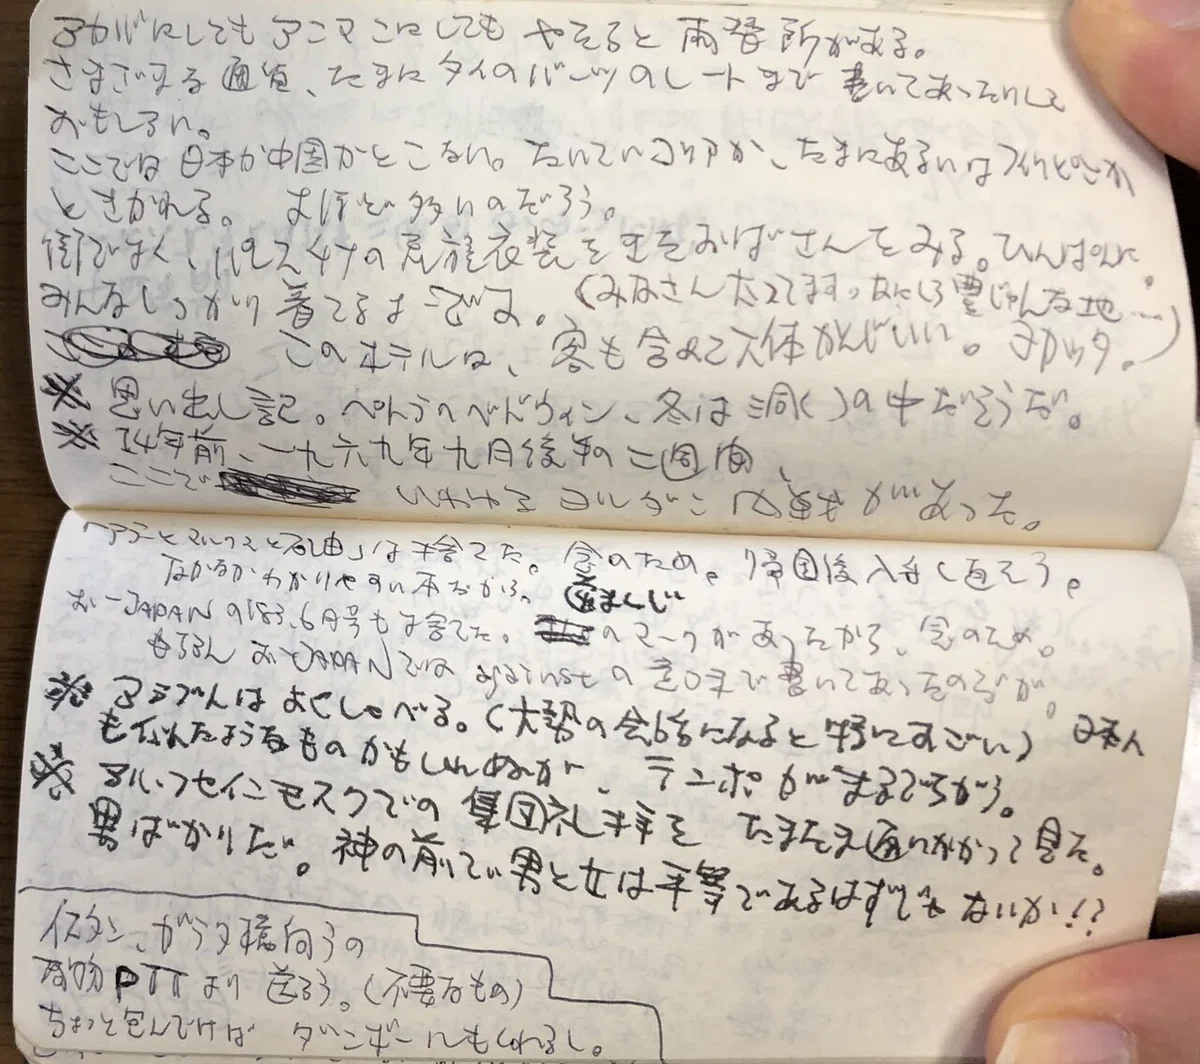 アカバにしてもアンマンにしても やたらと両替所がある。
さまざまな通貨、たまにタイのバーツのレートまで書いてあったりして
おもしろい。
ここでは日本か中国かとこない。たいていコリアか、たまにあるいはフィリピンか
ときかれる。 よほど多いのだろう。
街でよく、パレスチナの民族衣装を着たおばさんをみる。ひんぱんに。
みんなしっかり着てるようです。(みなさん太ってます。なにしろ豊じゅんな地…)
このホテルは、客も含めて大体かんじいい。よかった。
※ 思い出し記。ペトラのベドウィン、冬は洞( )の中だそうだ。
※ 14年前、一九六九年九月後半の二週間、
ここで いわゆるヨルダン内戦があった。
「アラーとマルクスと石油」は捨てた。念のため。帰国後入手し直そう。
なかなかわかりやすい本だから。
おーJAPANの'83.6月号も捨てた。 のマークがあったから、念のため。
もちろん おーJAPANでは againstの 書いてあったのだが。
※ アラブ人はよくしゃべる。(大勢の会話になると特にすごい) 日本人
も似たようなものかもしれぬが、テンポがまるでちがう。
※ アル・フセインモスクでの集団礼拝をたまたま通りかかって見た。
男ばかりだ。神の前で男と女は平等であるはずでもないか!?
イスタン、ガラタ橋向うの
荷物PTTより送ろう。(不要なもの)
ちょっと包んでけば ダンボールもくれるし。